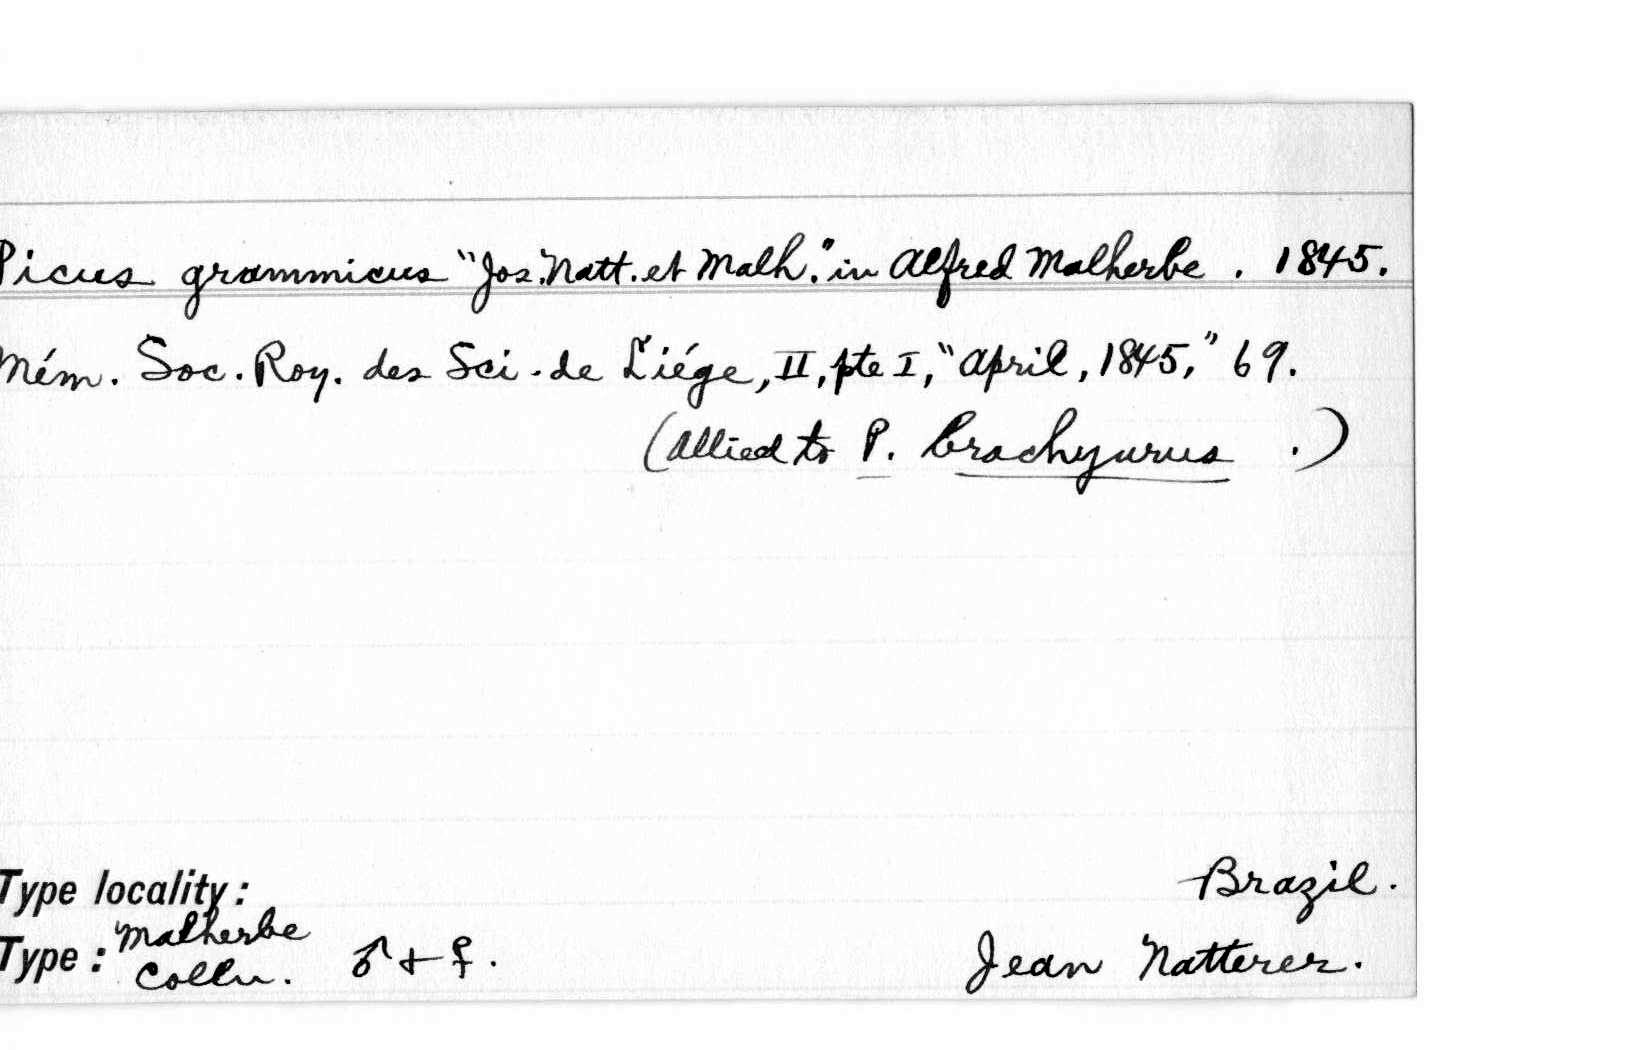 Picus grammicus "Jos. Natt. et Malh." in Alfred Malherbe. 1845.
Mém. Soc. Roy. des Sci. de Liége, II, pte I, "April, 1845," 69.
(Allied to P. brachyurus .)
Type locality: Brazil.
Type: Malherbe Colln. ♂ + ♀. Jean Natterer.